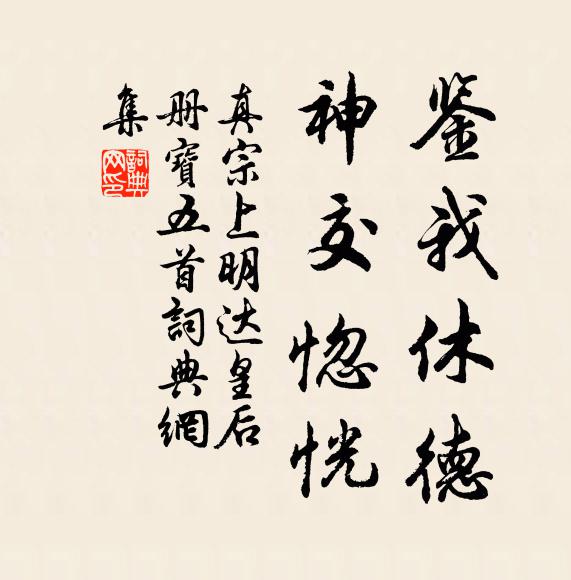 鉴我休德
神交惚恍
真宗上明达皇后
册寶五首詞典網
集
詞典網印